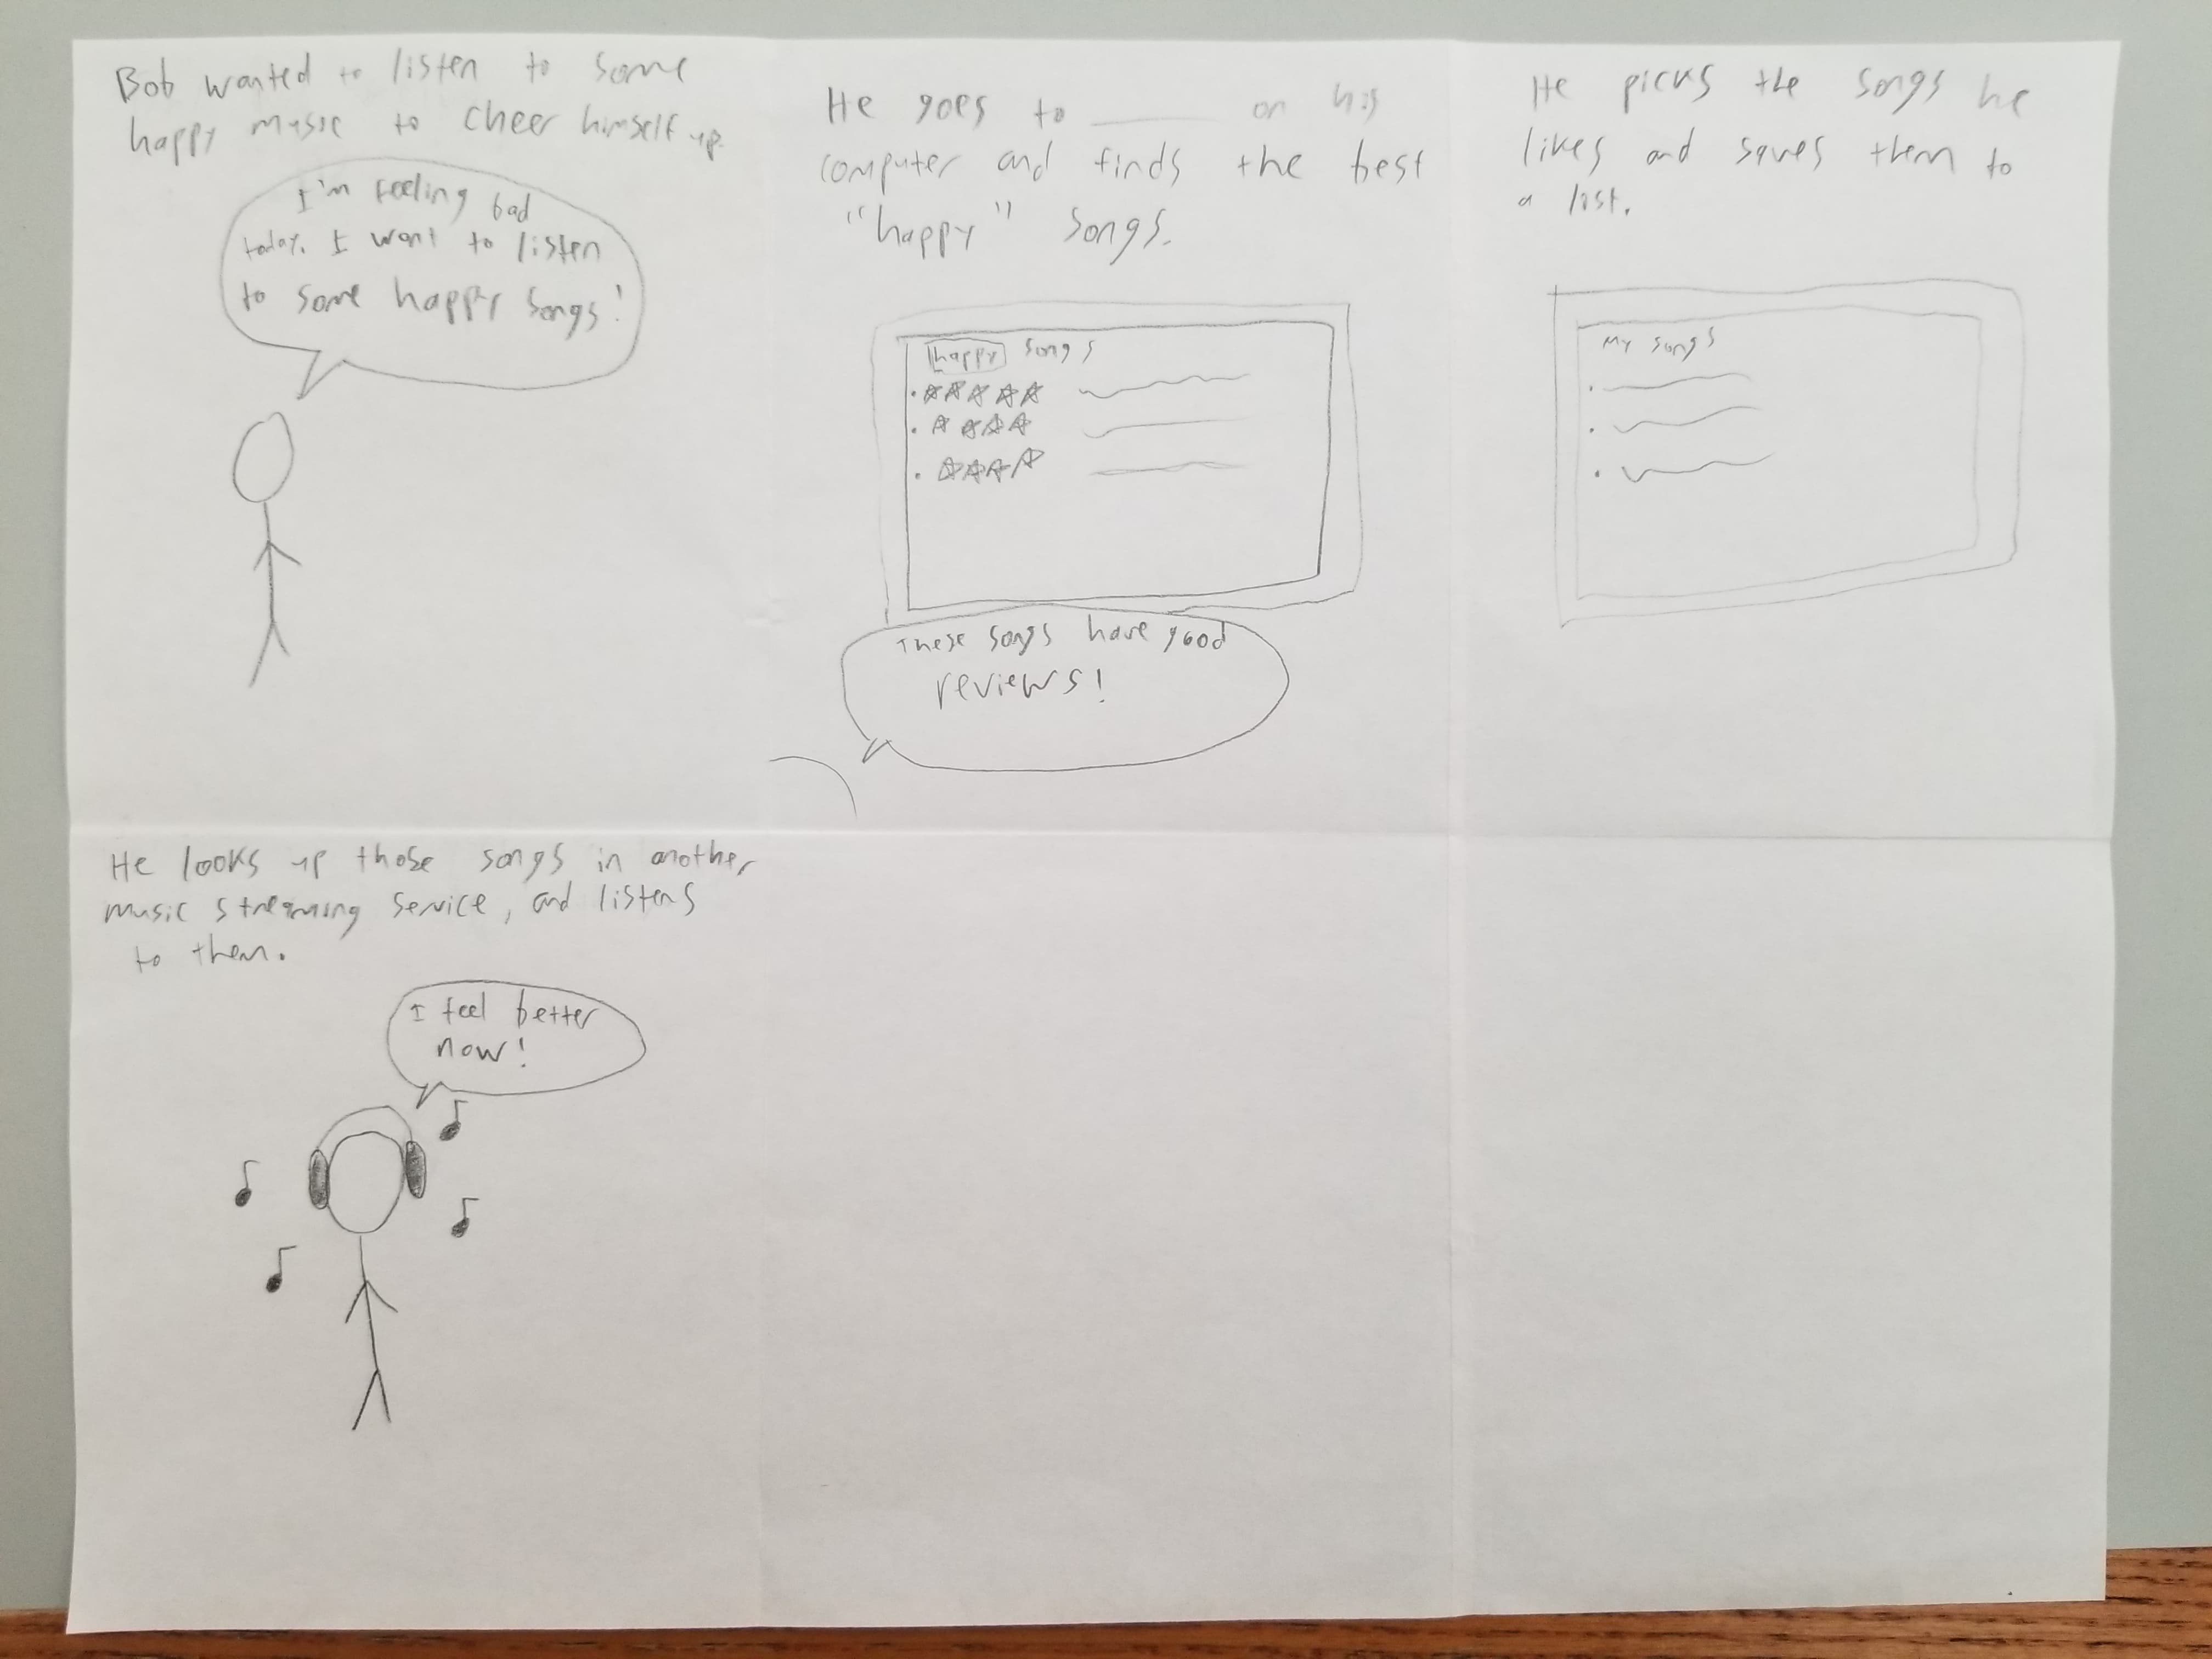 Bob wanted to listen to some
happy music to cheer himself up.
I'm feeling bad
today. I want to listen
to some happy songs!
He goes to ______ on his
computer and finds the best
"happy" songs.
happy songs
These songs have good
reviews!
He picks the songs he
likes and saves them to
a list.
My songs
He looks up those songs in another
music streaming service, and listens
to them.
I feel better
now!